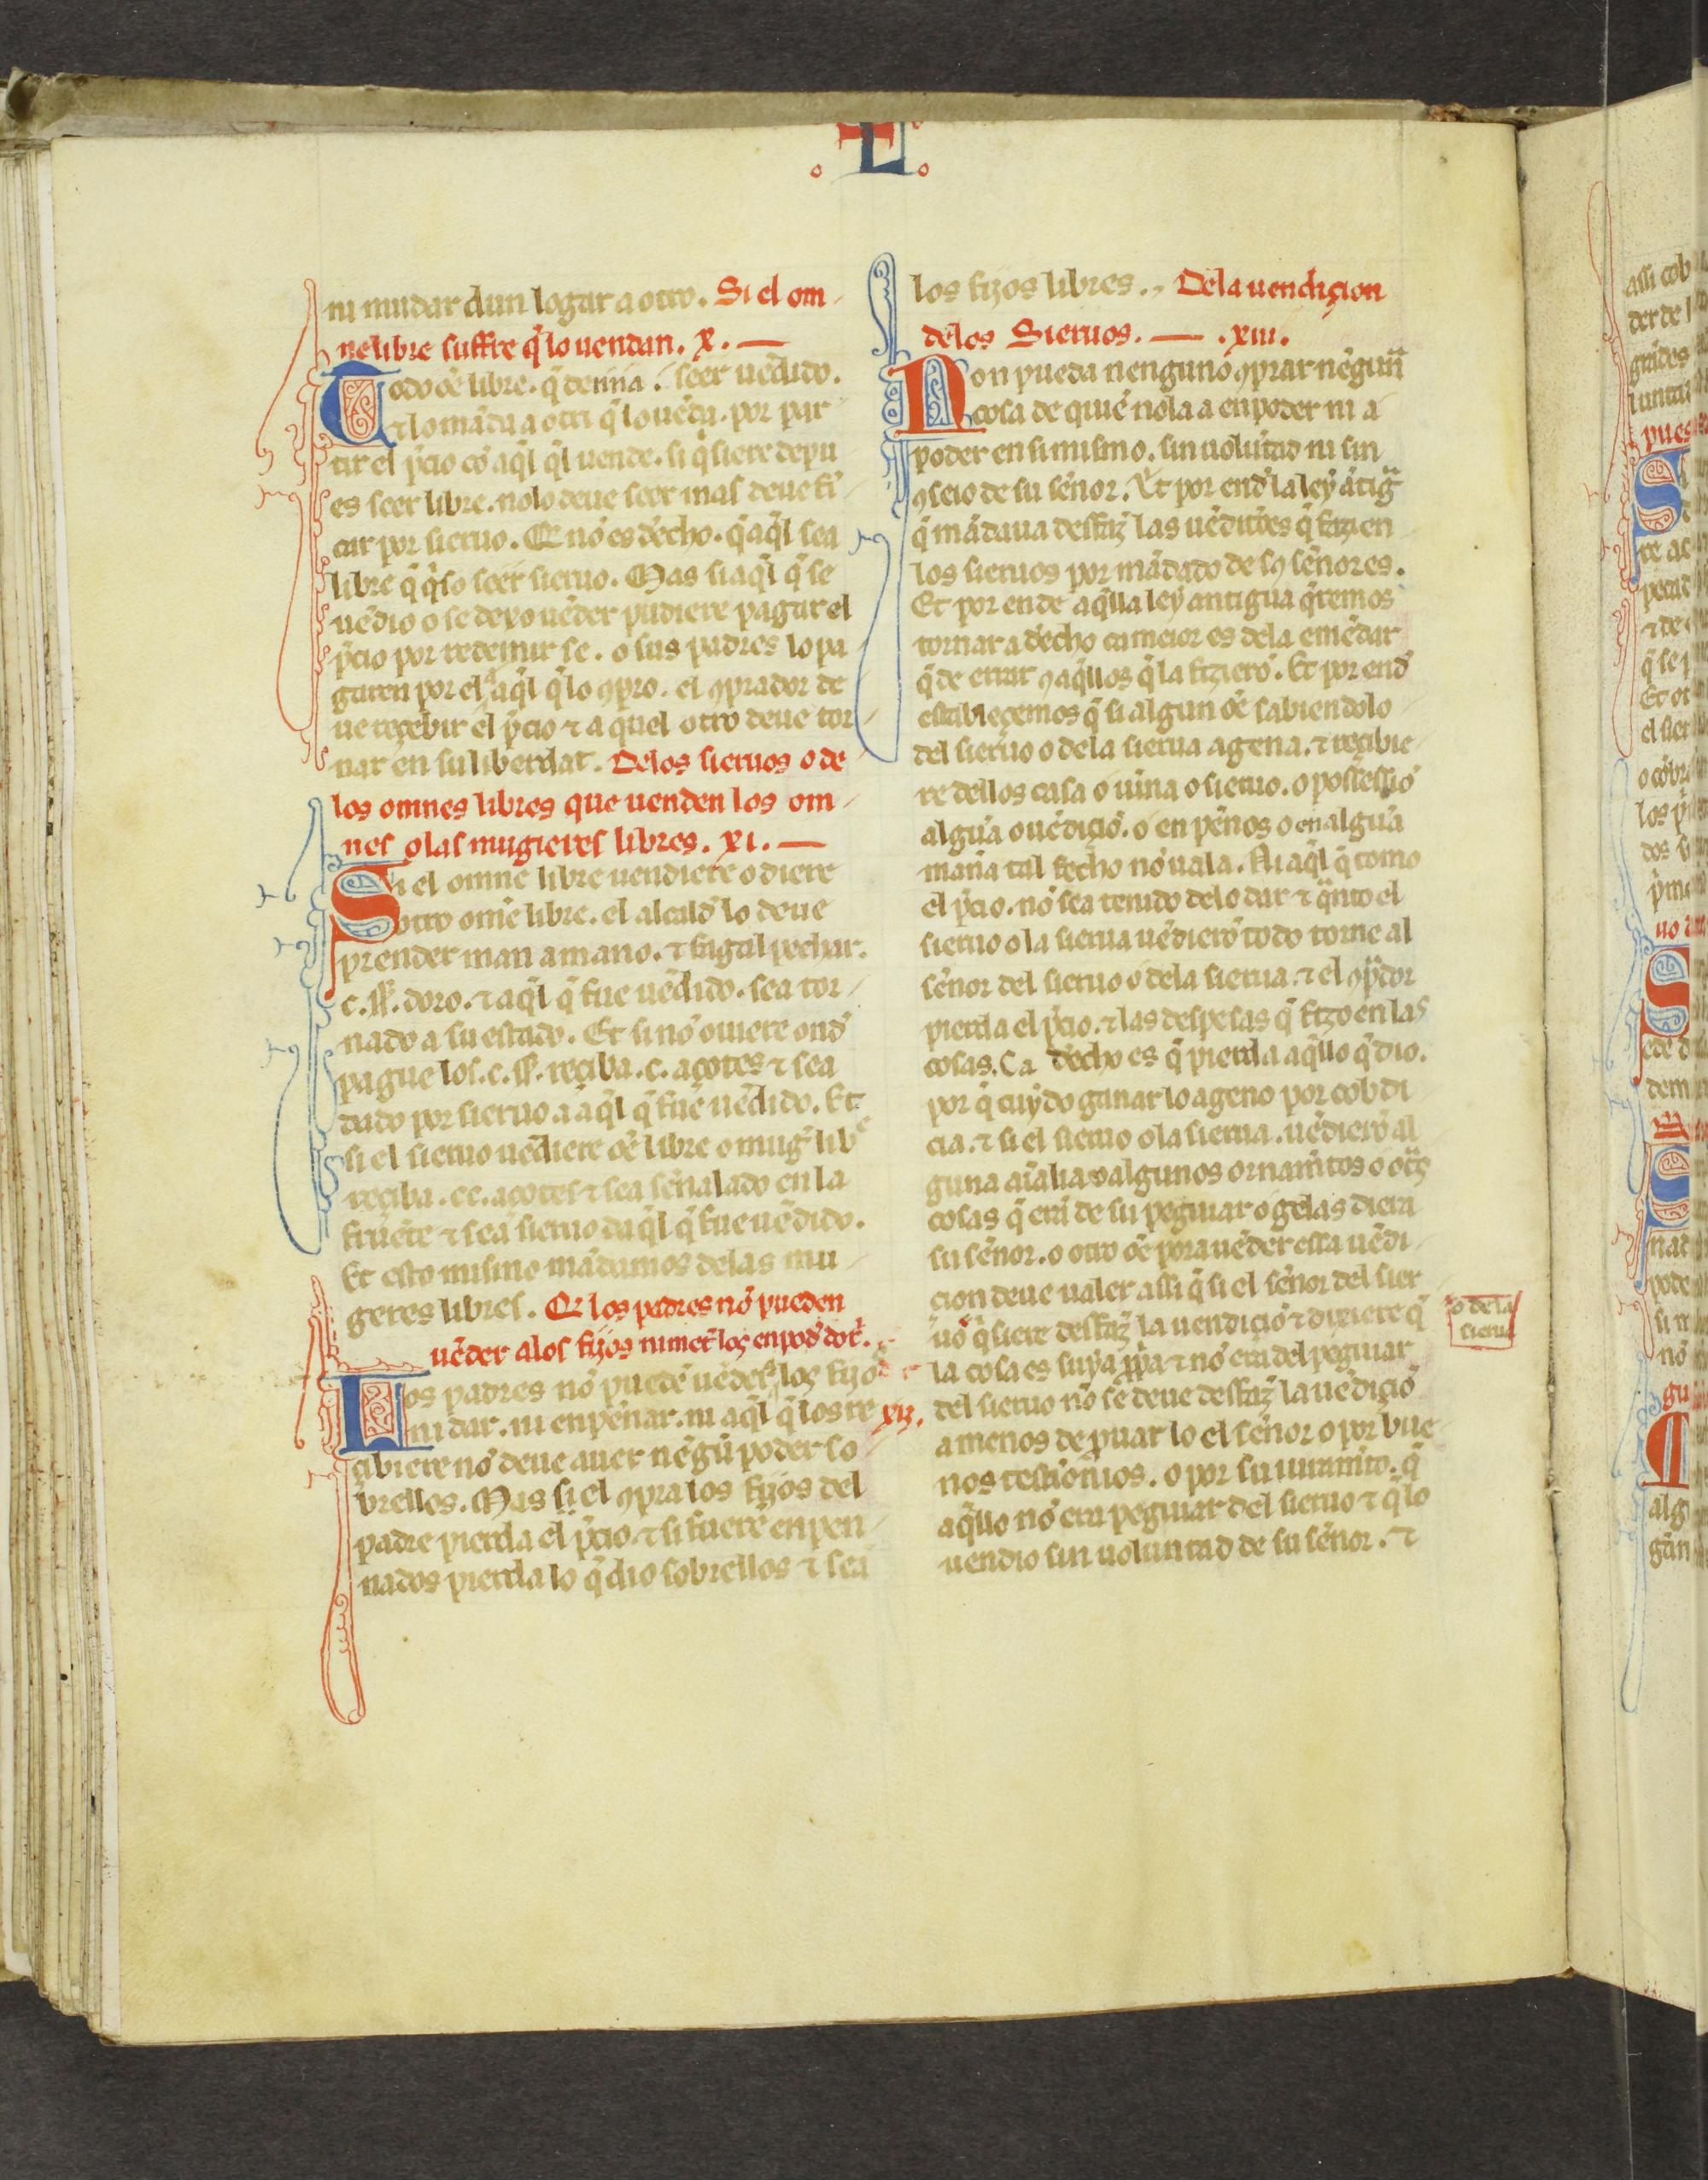 L
ni mudar dun logar a otro. Si el om
ne libre suffre q̄ lo uendan. X.
Todo oē libre. q̄ demna. seer uēdido.
⁊ lo māda a otri q̄ lo uēda. por par
tir el p̄cio cō aq̄l q̄l uende. si q̄siere depu
es seer libre. nolo deue seer mas deue fī
car por sieruo. Q̄ nō es d̄echo. q̄ aq̄l sea
libre q̄ q̄so seer sieruo. Mas si aq̄l q̄ se
uēdio o se dexo uēder pudiere pagar el
p̄cio por redemir se. o sus padres lo pa
garen por el a aq̄l q̄ lo ꝯpro. el ꝯprador de
ue reçebir el p̄cio ⁊ a quel otro deue tor
nar en su liberdat. Delos sieruos o de
los omnes libres que uenden los om
nes o las mugieres libres. XI.
Si el omne libre uendiere o diere
otro ome libre. el alcald̄ lo deue
prender man a mano. ⁊ fagal pechar.
.c. ss̄. doro. ⁊ aq̄l q̄ fue uēdido. sea tor
nado a su estado. Et si nō ouiere ond̄
pague los .c. ss̄. reçiba .c. açotes ⁊ sea
dado por sieruo a aq̄l q̄ fue uēdido. Et
si el sieruo uēdiere oē libre o muḡ libe
reçiba .cc. açotes ⁊ sea señalado en la
fruēte ⁊ sea sieruo daq̄l q̄ fue uēdido.
Et esto mismo mādamos delas mu
geres libres. Q̄ los padres nō pueden
uēder alos fijos ni met̄ los en pod̄ dot̄.
XII.
Los padres nō puedē uēder los fijos
ni dar. ni enpēnar. ni aq̄l q̄ los re
cibiere nō deue auer nēgū poder so
brellos. Mas si el ꝯpra los fijos del
padre pierda el p̄cio. ⁊ si fuerē enpen
nados pierda lo q̄ dio sobrellos ⁊ seā
los fijos libres. Dela uendiçion
delos Sieruos. .XIII.
Non pueda nenguno ꝯprar nēguna
cosa de quiē nola a en poder ni a
poder en si mismo. sin uolūtad ni sin
ꝯseio de su sēnor. Et por end̄ la ley ātiga
q̄ mādaua desfaz̄ las uēdiçōes q̄ fazien
los sieruos por mādado de sꝯ sēnores.
Et por ende aq̄lla ley antigua q̄remos
tornar a d̄echo ca meior es dela emēdar
q̄ de errar ꝯ aq̄llos q̄ la fizierō. Et por end̄
establecemos q̄ si algun oē sabiendolo
del sieruo o dela sierua agena. ⁊ recibie
re dellos casa o uīna o sieruo. o possessiō
algūa o uēdiçiō. o en pēnos o en algūa
mana tal fecho nō uala. Ni aq̄l q̄ tomo
el p̄cio. nō sea tenido delo dar ⁊ q̄nto el
sieruo o la sierua uēdierō todo torne al
sēnor del sieruo o dela sierua. ⁊ el ꝯpdor
pierda el p̄cio. ⁊ las despesas q̄ fizo en las
cosas. Ca d̄echo es q̄ pierda aq̄llo q̄ dio.
por q̄ cuydo ganar lo ageno por cobdi
cia. ⁊ si el sieruo o la sierua. uēdierō al
guna aīalia o algunos ornamītos o otas
cosas q̄ erā de su peguiar o gelas diera
su sēnor. o otro oē pora uēder essa uēdi
cion deue ualer assi q̄ si el sēnor del sier
uo q̄siere desfaz̄ la uendiciō ⁊ dixiere q̄
o dela
sierua
la cosa es suya ꝓpia ⁊ nō era del peguiar
del sieruo nō se deue desfaz̄ la uēdiçiō
a menos de ꝓuar lo el sēnor o por bue
nos testimōios. o por su iuramīto. q̄
aq̄llo nō era peguiar del sieruo ⁊ q̄ lo
uendio sin uoluntad de su sēnor. ⁊